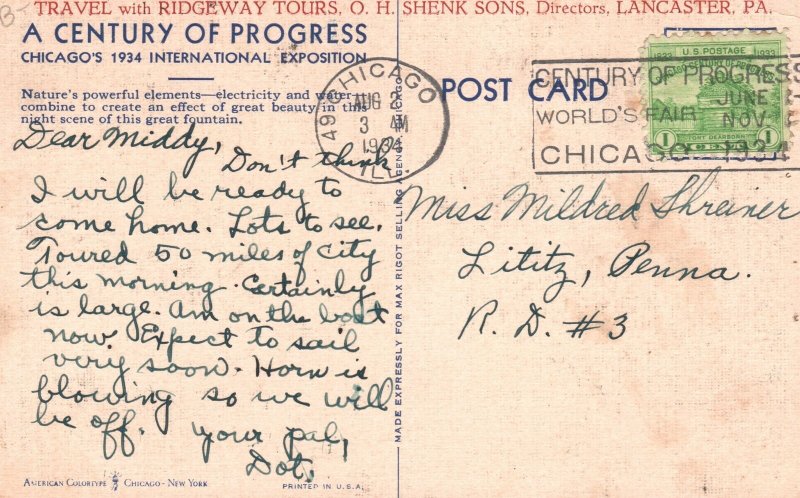 TRAVEL with RIDGEWAY TOURS, O. H. SHENK SONS, Directors, LANCASTER, PA.
A CENTURY OF PROGRESS
CHICAGO'S 1934 INTERNATIONAL EXPOSITION
Nature's powerful elements—electricity and water—
combine to create an effect of great beauty in this
night scene of this great fountain.
Dear Middy,
Don't think
I will be ready to
come home. Lots to see.
Toured 50 miles of City
this morning. Certainly
is large. Am on the boat
now. Expect to sail
very soon. Horn is
blowing so we will
be off. Your pal,
Dot.
AMERICAN COLORTYPE CHICAGO - NEW YORK
PRINTED IN U.S.A.
MADE EXPRESSLY FOR MAX RIGOT SELLING AGENCY, CHICAGO
CHICAGO
AUG 3
3 AM
1934
ILL.
49
POST CARD
CENTURY OF PROGRESS
JUNE
WORLD'S FAIR
NOV.
CHICAGO 1934
U.S. POSTAGE
1833 1933
FORT DEARBORN
1 1
Miss Mildred Shreiner
Lititz, Penna.
R. D. #3